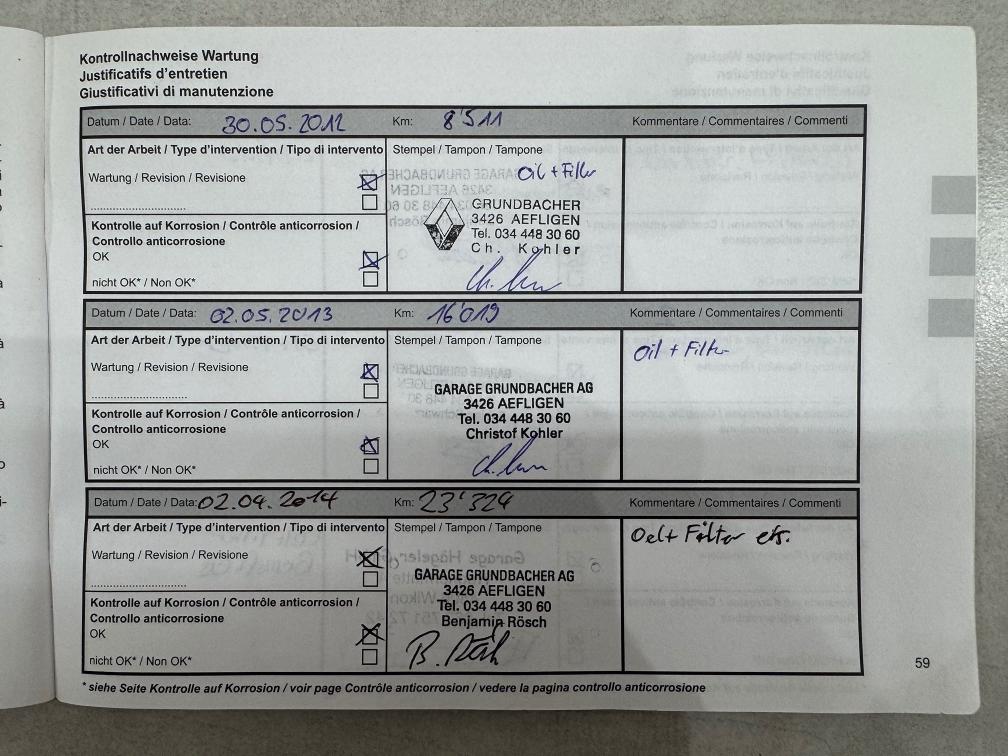 Kontrollnachweise Wartung
Justificatifs d'entretien
Giustificativi di manutenzione
Datum / Date / Data: 30.05.2012 Km: 8'511 Kommentare / Commentaires / Commenti
Art der Arbeit / Type d'intervention / Tipo di intervento Stempel / Tampon / Tampone
Oil + Filter
Wartung / Revision / Revisione
GRUNDBACHER
3426 AEFLIGEN
Tel. 034 448 30 60
Ch. Kohler
Kontrolle auf Korrosion / Contrôle anticorrosion /
Controllo anticorrosione
OK
nicht OK* / Non OK*
Datum / Date / Data: 02.05.2013 Km: 16'019 Kommentare / Commentaires / Commenti
Art der Arbeit / Type d'intervention / Tipo di intervento Stempel / Tampon / Tampone
Oil + Filter
Wartung / Revision / Revisione
GARAGE GRUNDBACHER AG
3426 AEFLIGEN
Tel. 034 448 30 60
Christof Kohler
Kontrolle auf Korrosion / Contrôle anticorrosion /
Controllo anticorrosione
OK
nicht OK* / Non OK*
Datum / Date / Data: 02.04.2014 Km: 23'324 Kommentare / Commentaires / Commenti
Art der Arbeit / Type d'intervention / Tipo di intervento Stempel / Tampon / Tampone
Oel + Filter etc.
Wartung / Revision / Revisione
GARAGE GRUNDBACHER AG
3426 AEFLIGEN
Tel. 034 448 30 60
Benjamin Rösch
B. Rösch
Kontrolle auf Korrosion / Contrôle anticorrosion /
Controllo anticorrosione
OK
nicht OK* / Non OK*
* siehe Seite Kontrolle auf Korrosion / voir page Contrôle anticorrosion / vedere la pagina controllo anticorrosione
59